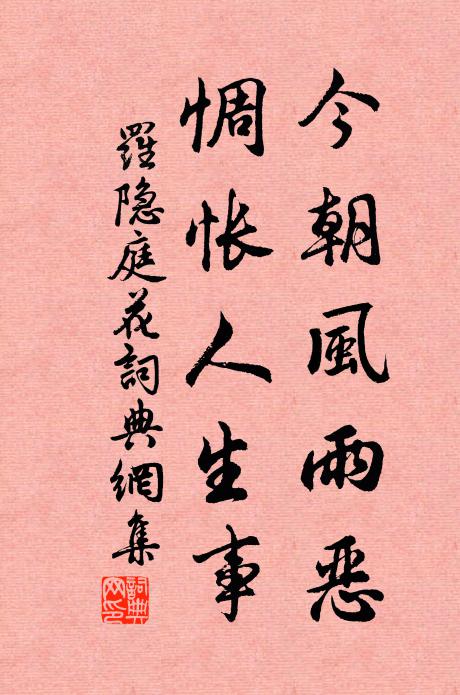 今朝風雨惡
惆怅人生事
羅隐庭花詞典網集
詞典网印